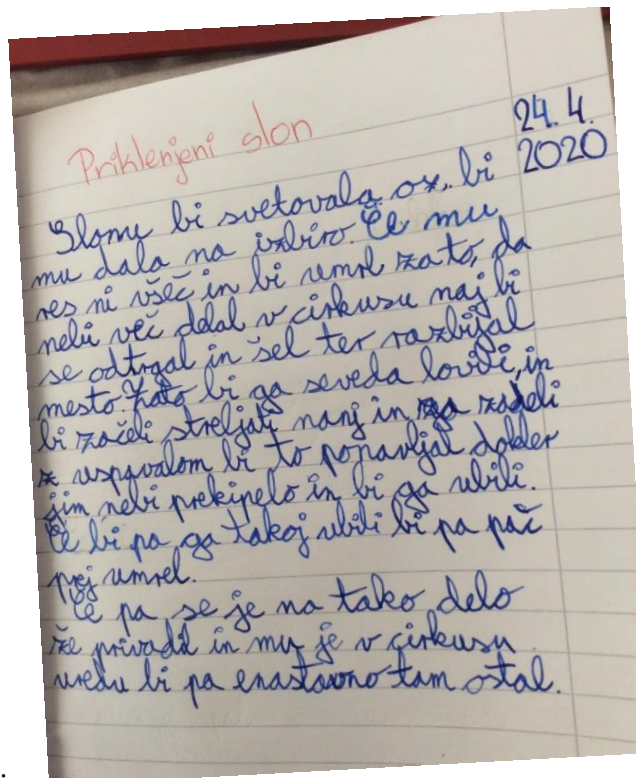 24. 4.
2020
Priklenjeni slon
Slonu bi svetovala oz. bi
mu dala na izbiro. Če mu
res ni všeč in bi umrl zato, da
nebi več delal v cirkusu naj bi
se odtrgal in šel ter razbijal
mesto. Zato bi ga seveda lovili, in
bi začeli streljati nanj in zadeli
z uspavalom bi to ponavljal dokler
jim nebi prekipelo in bi ga ubili.
Če bi pa ga takoj ubili bi pa pač
prej umrel.
Če pa se je na tako delo
že privadil in mu je v cirkusu
uredu bi pa enastavno tam ostal.